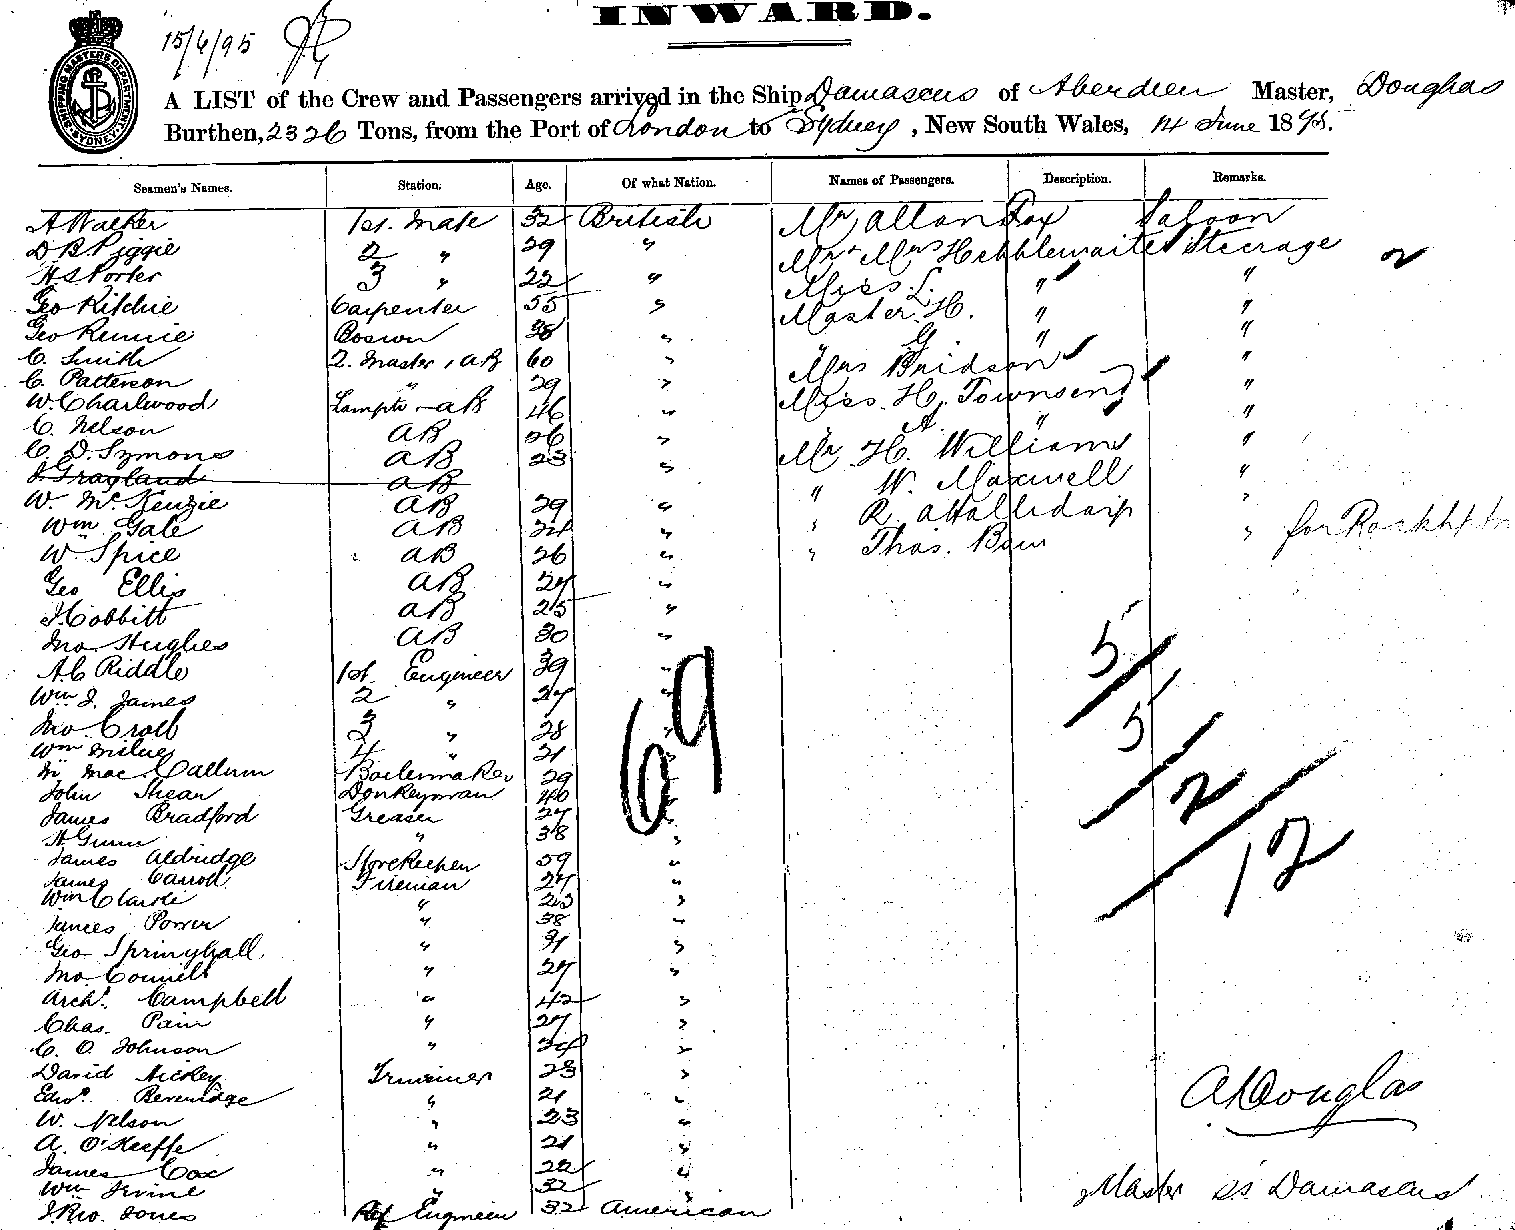 INWARD.
15/6/95
A LIST of the Crew and Passengers arrived in the Ship Damascus of Aberdeen Master, Douglas
Burthen, 2326 Tons, from the Port of London to Sydney, New South Wales, 14 June 1895.
Seamen's Names. Station. Age. Of what Nation. Names of Passengers. Description. Remarks.
A Walker 1st. Mate 32 British Mr Allan Fox Saloon
D B Piggie 2 " 29 " Mr & Mrs Hebblewaite Steerage 2
H S Porter 3 " 22 " Miss L. " "
Geo Ritchie Carpenter 55 " Master H. " "
Geo Rennie Boswn 38 " G " "
C. Smith 2. Master, AB 60 " Mrs Bridson "
C. Patterson " 29 " Miss. H. Townsend "
W. Charlwood Lamptr - AB 46 " A. " "
C. Nelson AB 26 " Mr H. Williams "
C. D. Symons AB 23 " " W. Maxwell "
J. Grayland AB
W. McKenzie AB 29 " " R. "
Wm Gale AB 24 " " Thos. Bain " for
W. Spice AB 26 "
Geo Ellis AB 27 "
J Cobbitt AB 25 "
Jno Hughes AB 30 "
A. C Riddle 1st. Engineer 39 "
Wm J. James 2 " 27 "
Jno. Croll 3 " 28 "
Wm Milne 4 " 21 "
M. MacCallum Boilermaker 29 "
John Shear Donkeyman 40 "
James Bradford Greaser 27 "
H Gunn " 38 "
James Aldridge Storekeeper 59 "
James Carroll Fireman 27 "
Wm Clarke " 23 "
James Power " 38 "
Geo Springhall " "
Jno. Connell " 27 "
Archd. Campbell " 42 "
Chas. Pain " 27 "
C. O. Johnson " 34 "
David Hickey Trimmer 23 "
Edwd. Beveridge " 21 "
W. Nelson " 23 "
A. O'Keeffe " 21 "
James Cox " 22 "
Wm Irvine " 32 "
J. Rio. Jones Ref Engineer 32 American
69
5/
5/2/12
A Douglas
Master ss Damascus